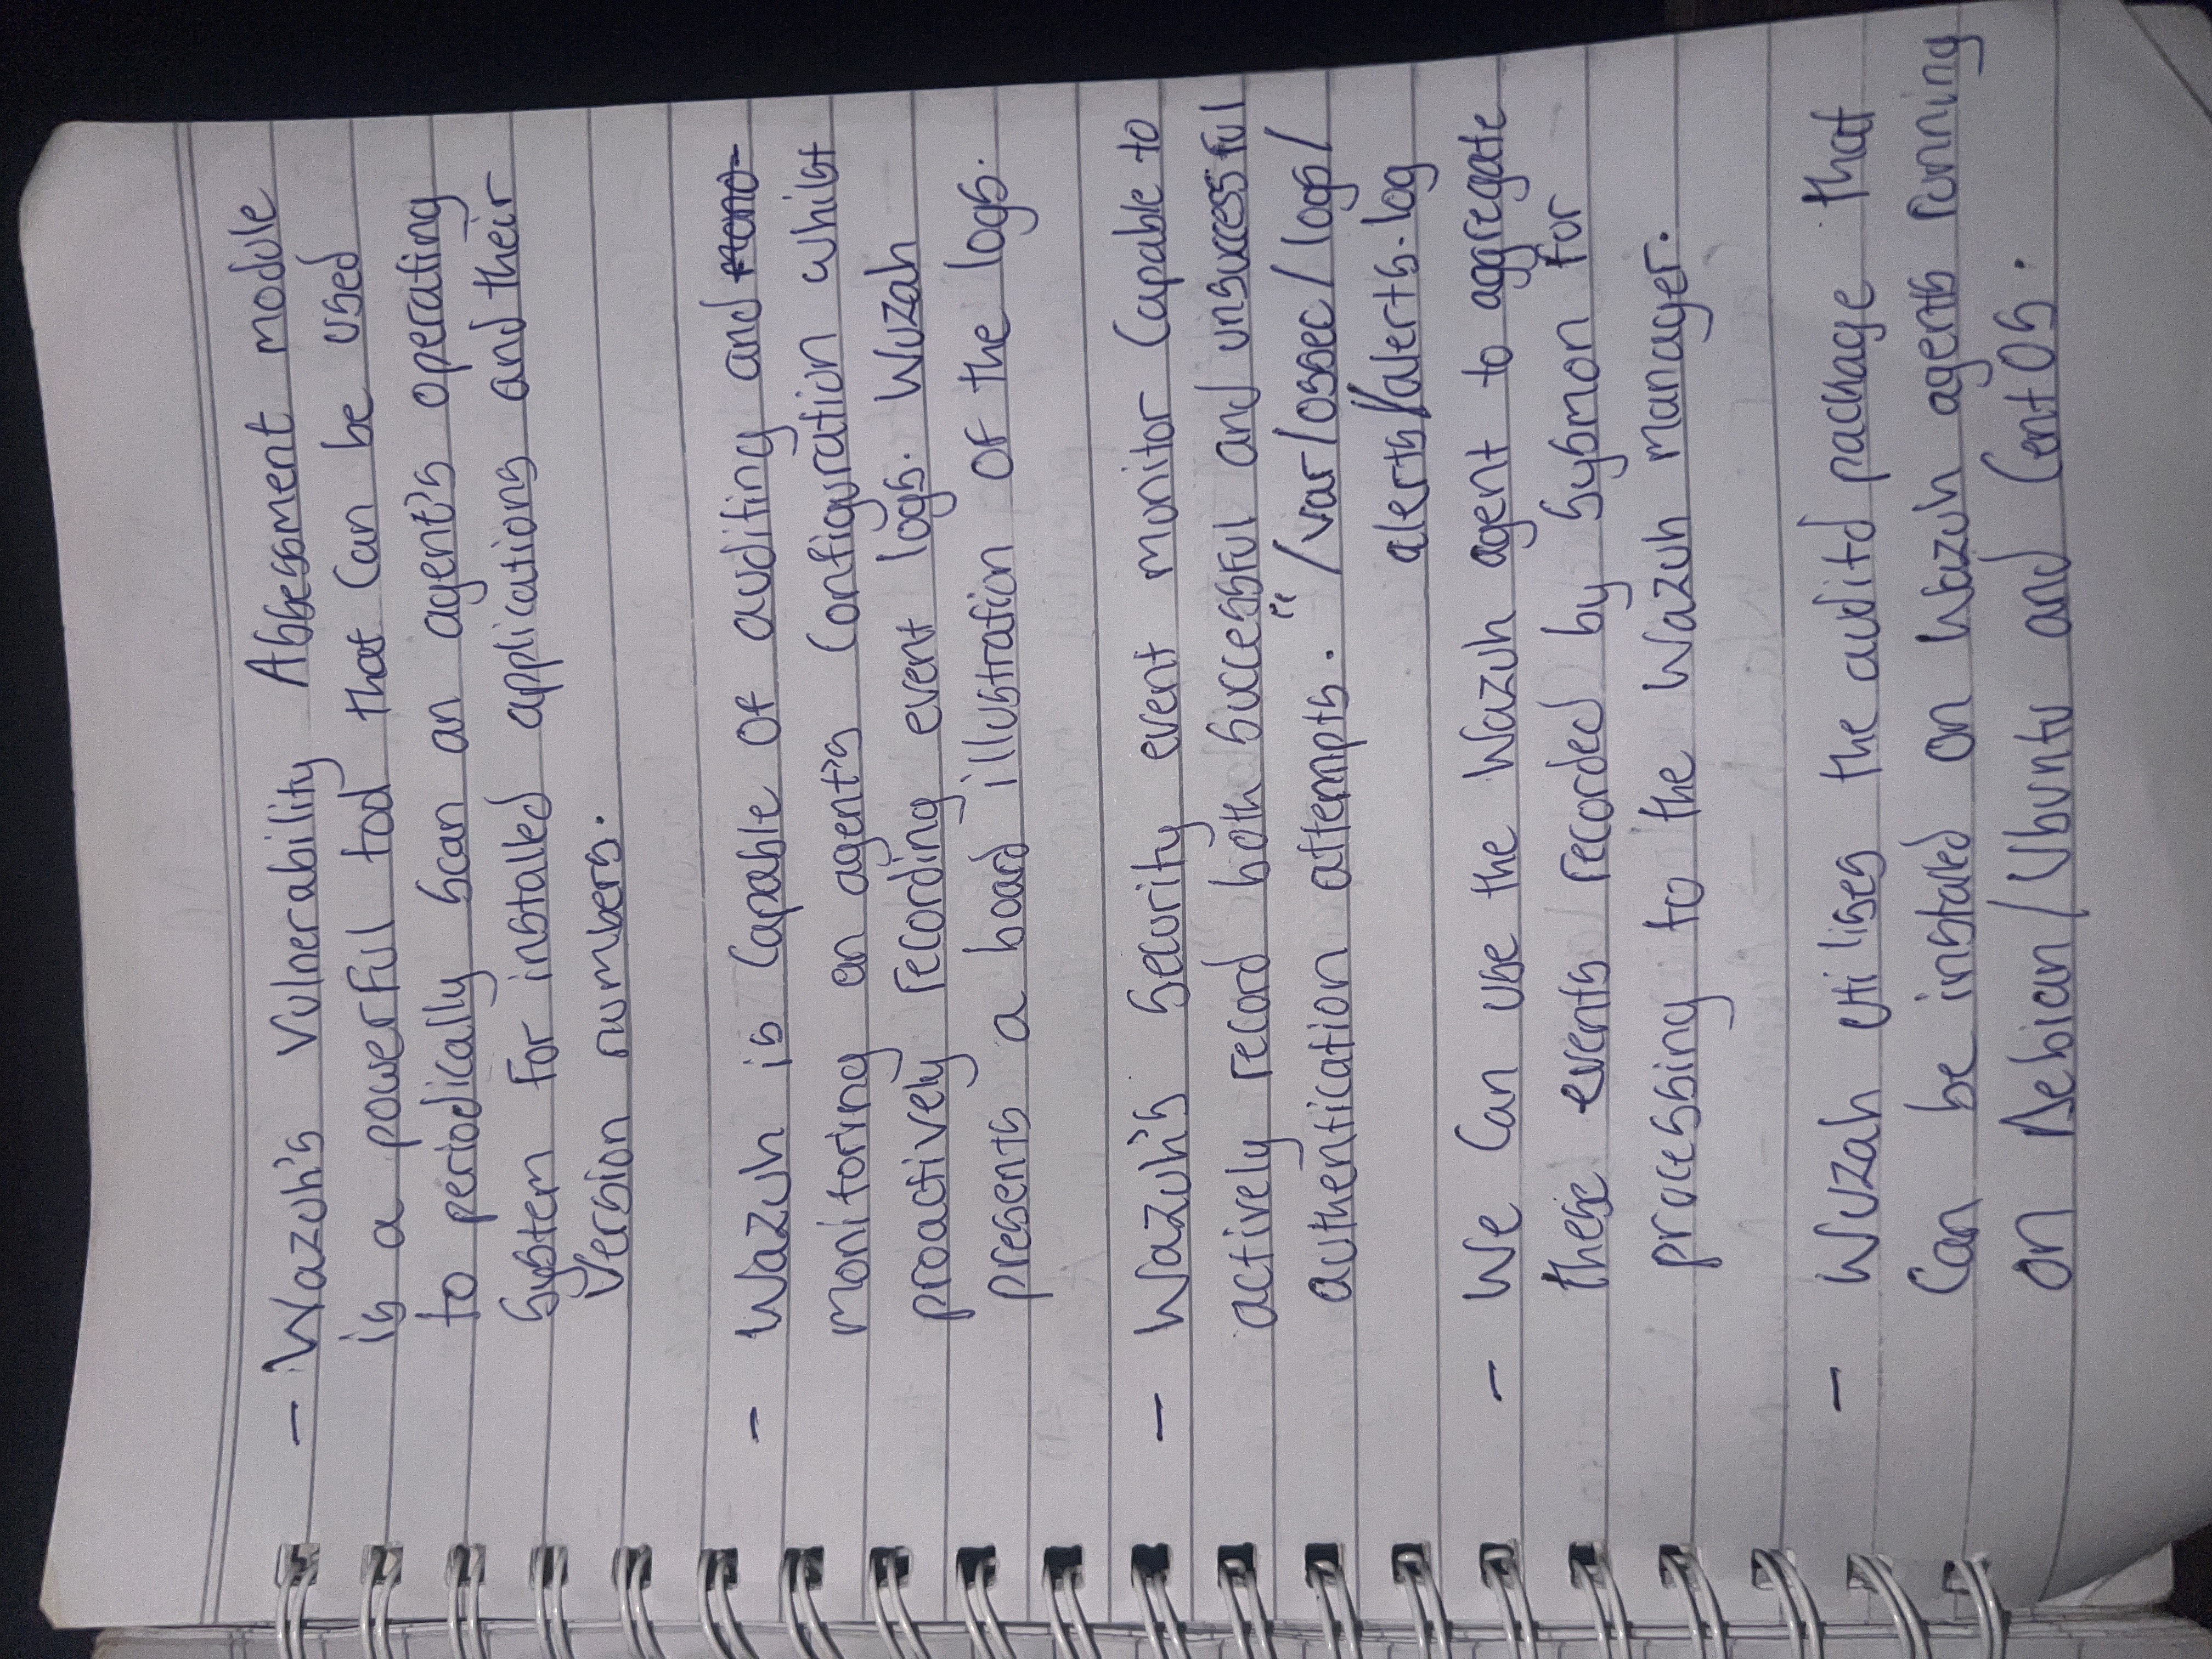 - Wazuh's Vulnerability Assessment module
is a powerful tool that can be used
to periodically scan an agent's operating
system for installed applications and their
version numbers.
- Wazuh is capable of auditing and mono-
monitoring an agent's configuration whilst
proactively recording event logs. Wuzah
presents a board illustration of the logs.
- Wazuh's security event monitor capable to
actively record both successful and unsuccessful
authentication attempts. "/var/ossec/logs/
alerts/alerts.log
- We can use the Wazuh agent to aggregate
these events recorded by Sysmon for
processing to the Wazuh manager.
- Wuzah utilises the auditd package that
can be installed on Wazuh agents running
on Debian/Ubuntu and CentOS.